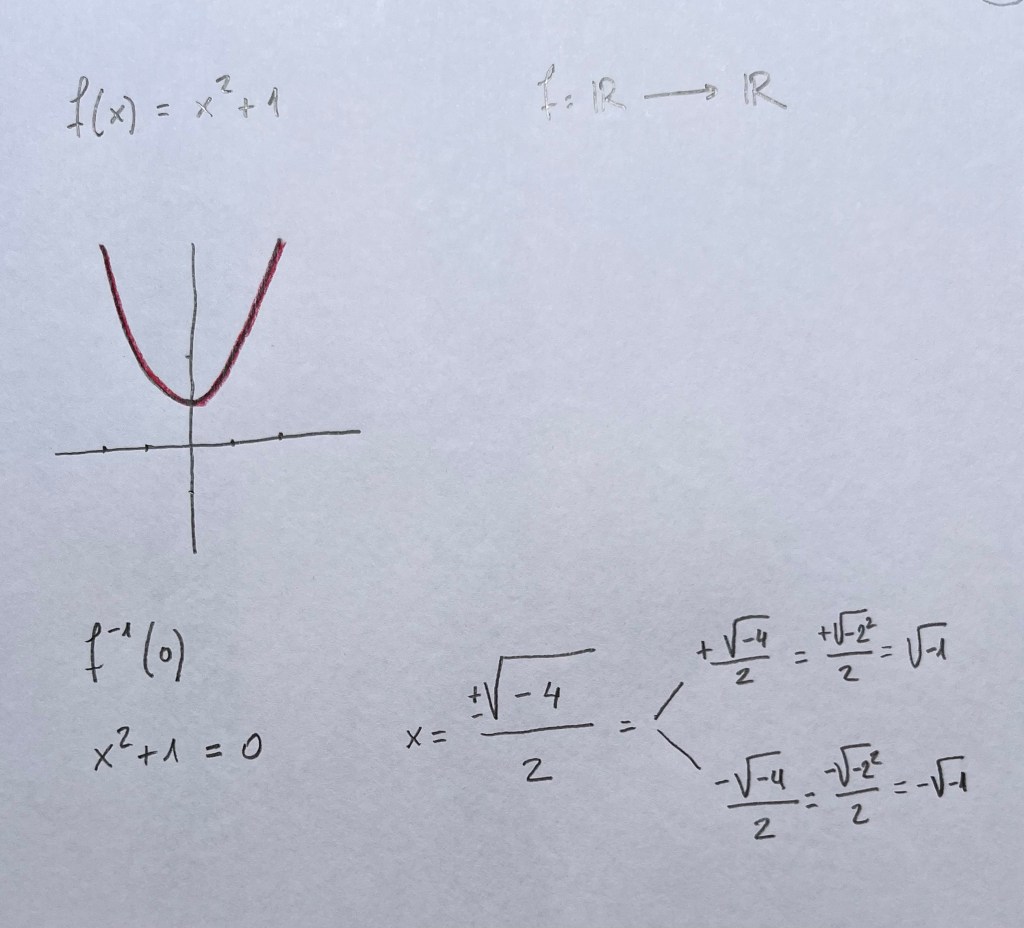 f(x) = x² + 1
f: ℝ ⟶ ℝ
f⁻¹(0)
x² + 1 = 0
x = ±√-4 / 2 =
+ √-4 / 2 = +√-2² / 2 = √-1
- √-4 / 2 = -√-2² / 2 = -√-1